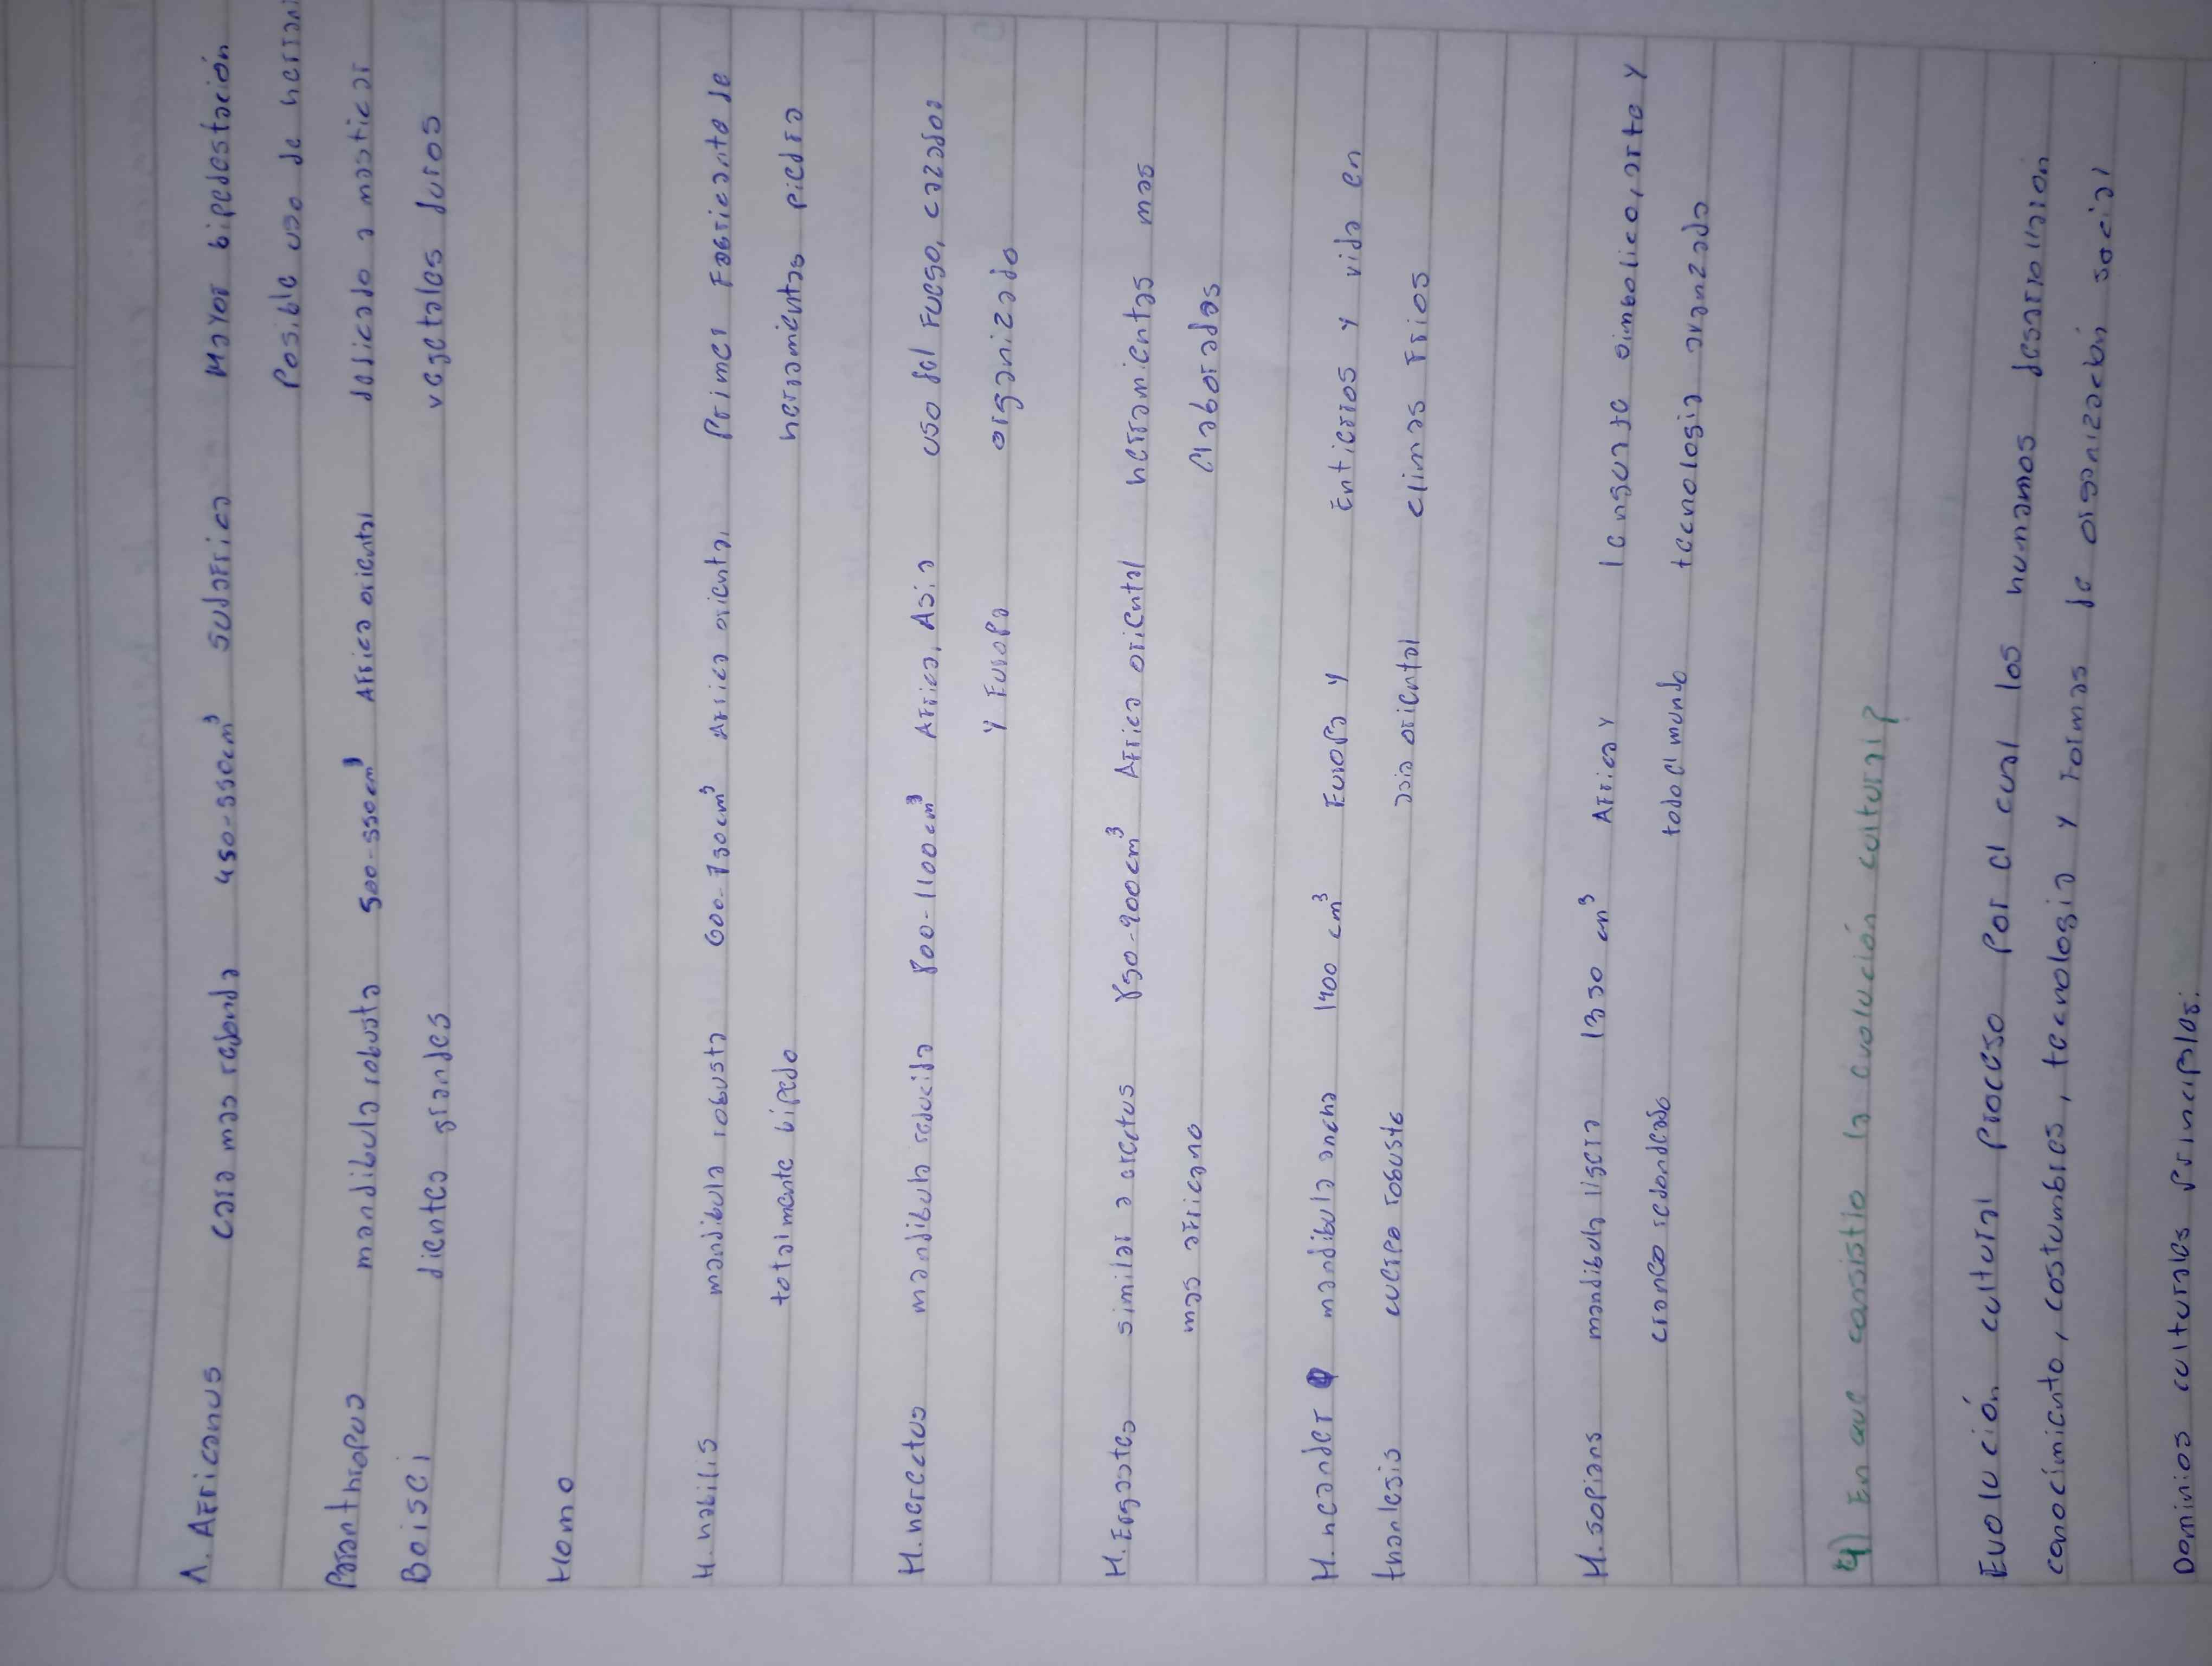 A. Africanus cara mas redonda 450-550cm³ sudafrica Mayor bipedestación
Posible uso de herrami
Paranthropus mandibula robusta 500-550cm³ Africa oriental delicado a masticar
Boisei dientes grandes vegetales duros
Homo
H. habilis mandibula robusta 600-750cm³ Africa oriental Primer Fabricante de
totalmente bipedo herramientas piedra
H. herectus mandibula reducida 800-1100cm³ Africa, Asia uso del fuego, cazador
y Europa organizado
H. Ergastes similar a erectus 850-900cm³ Africa oriental herramientas mas
mas africano elaboradas
H. neander mandibula ancha 1400 cm³ Europa y Entierros y vida en
thanlesis cuerpo robusto asia oriental climas frios
H. sapians mandibula ligera 1350 cm³ Africa y lenguaje simbolico, arte y
craneo redondeado todo el mundo tecnologia avanzada
4) En que consistio la evolución cultural?
Evolución cultural proceso por el cual los humanos desarrollaron
conocimiento, costumbres, tecnologia y formas de organización social
Dominios culturales principales: